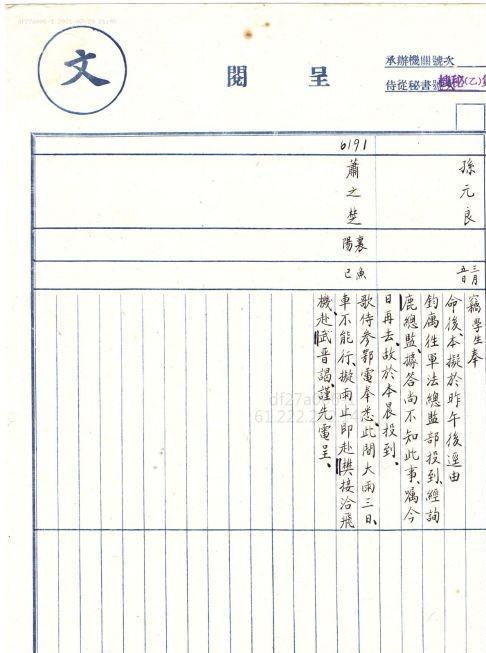 承辦機關號次
呈閱
文
孫元良
三月五日
竊學生奉
命後、本擬於昨午後逕由
鈞寓往軍法總監部投到、經詢
鹿總監、據答尚不知此事、囑今
日再去、故於本晨投到、
6191
蕭之楚
襄陽
魚巳
歌侍參鄂電奉悉、此間大雨三日、
車不能行、擬雨止即赴樊接洽飛
機赴武晉謁、謹先電呈、